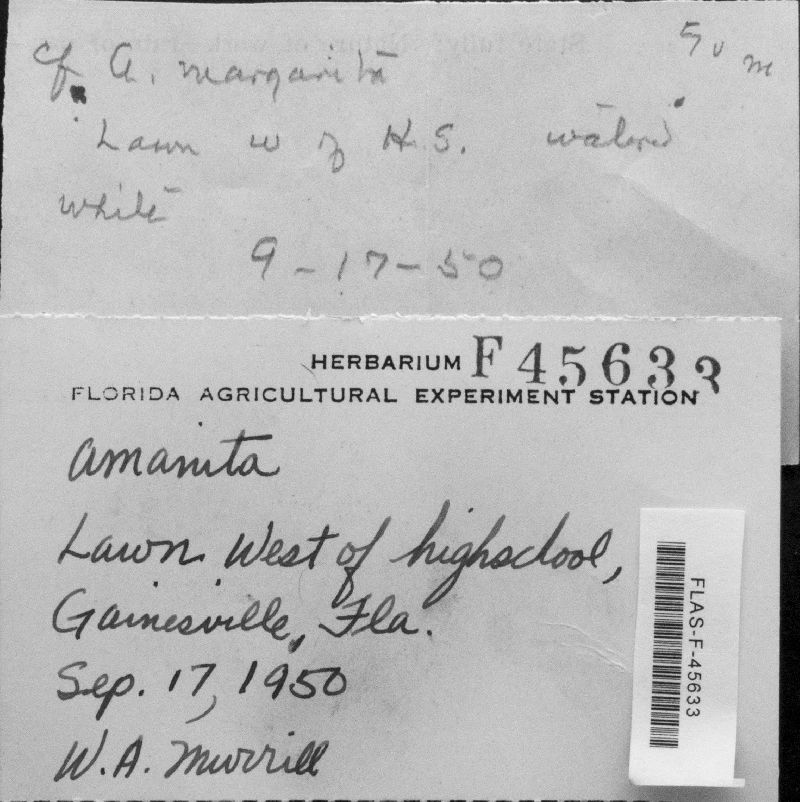 cf A. margarita
Lawn w of H.S.
white
9-17-50
HERBARIUM F45633
FLORIDA AGRICULTURAL EXPERIMENT STATION
Amanita
Lawn West of highschool,
Gainesville, Fla.
Sep. 17, 1950
W.A. Murrill
FLAS-F-45633